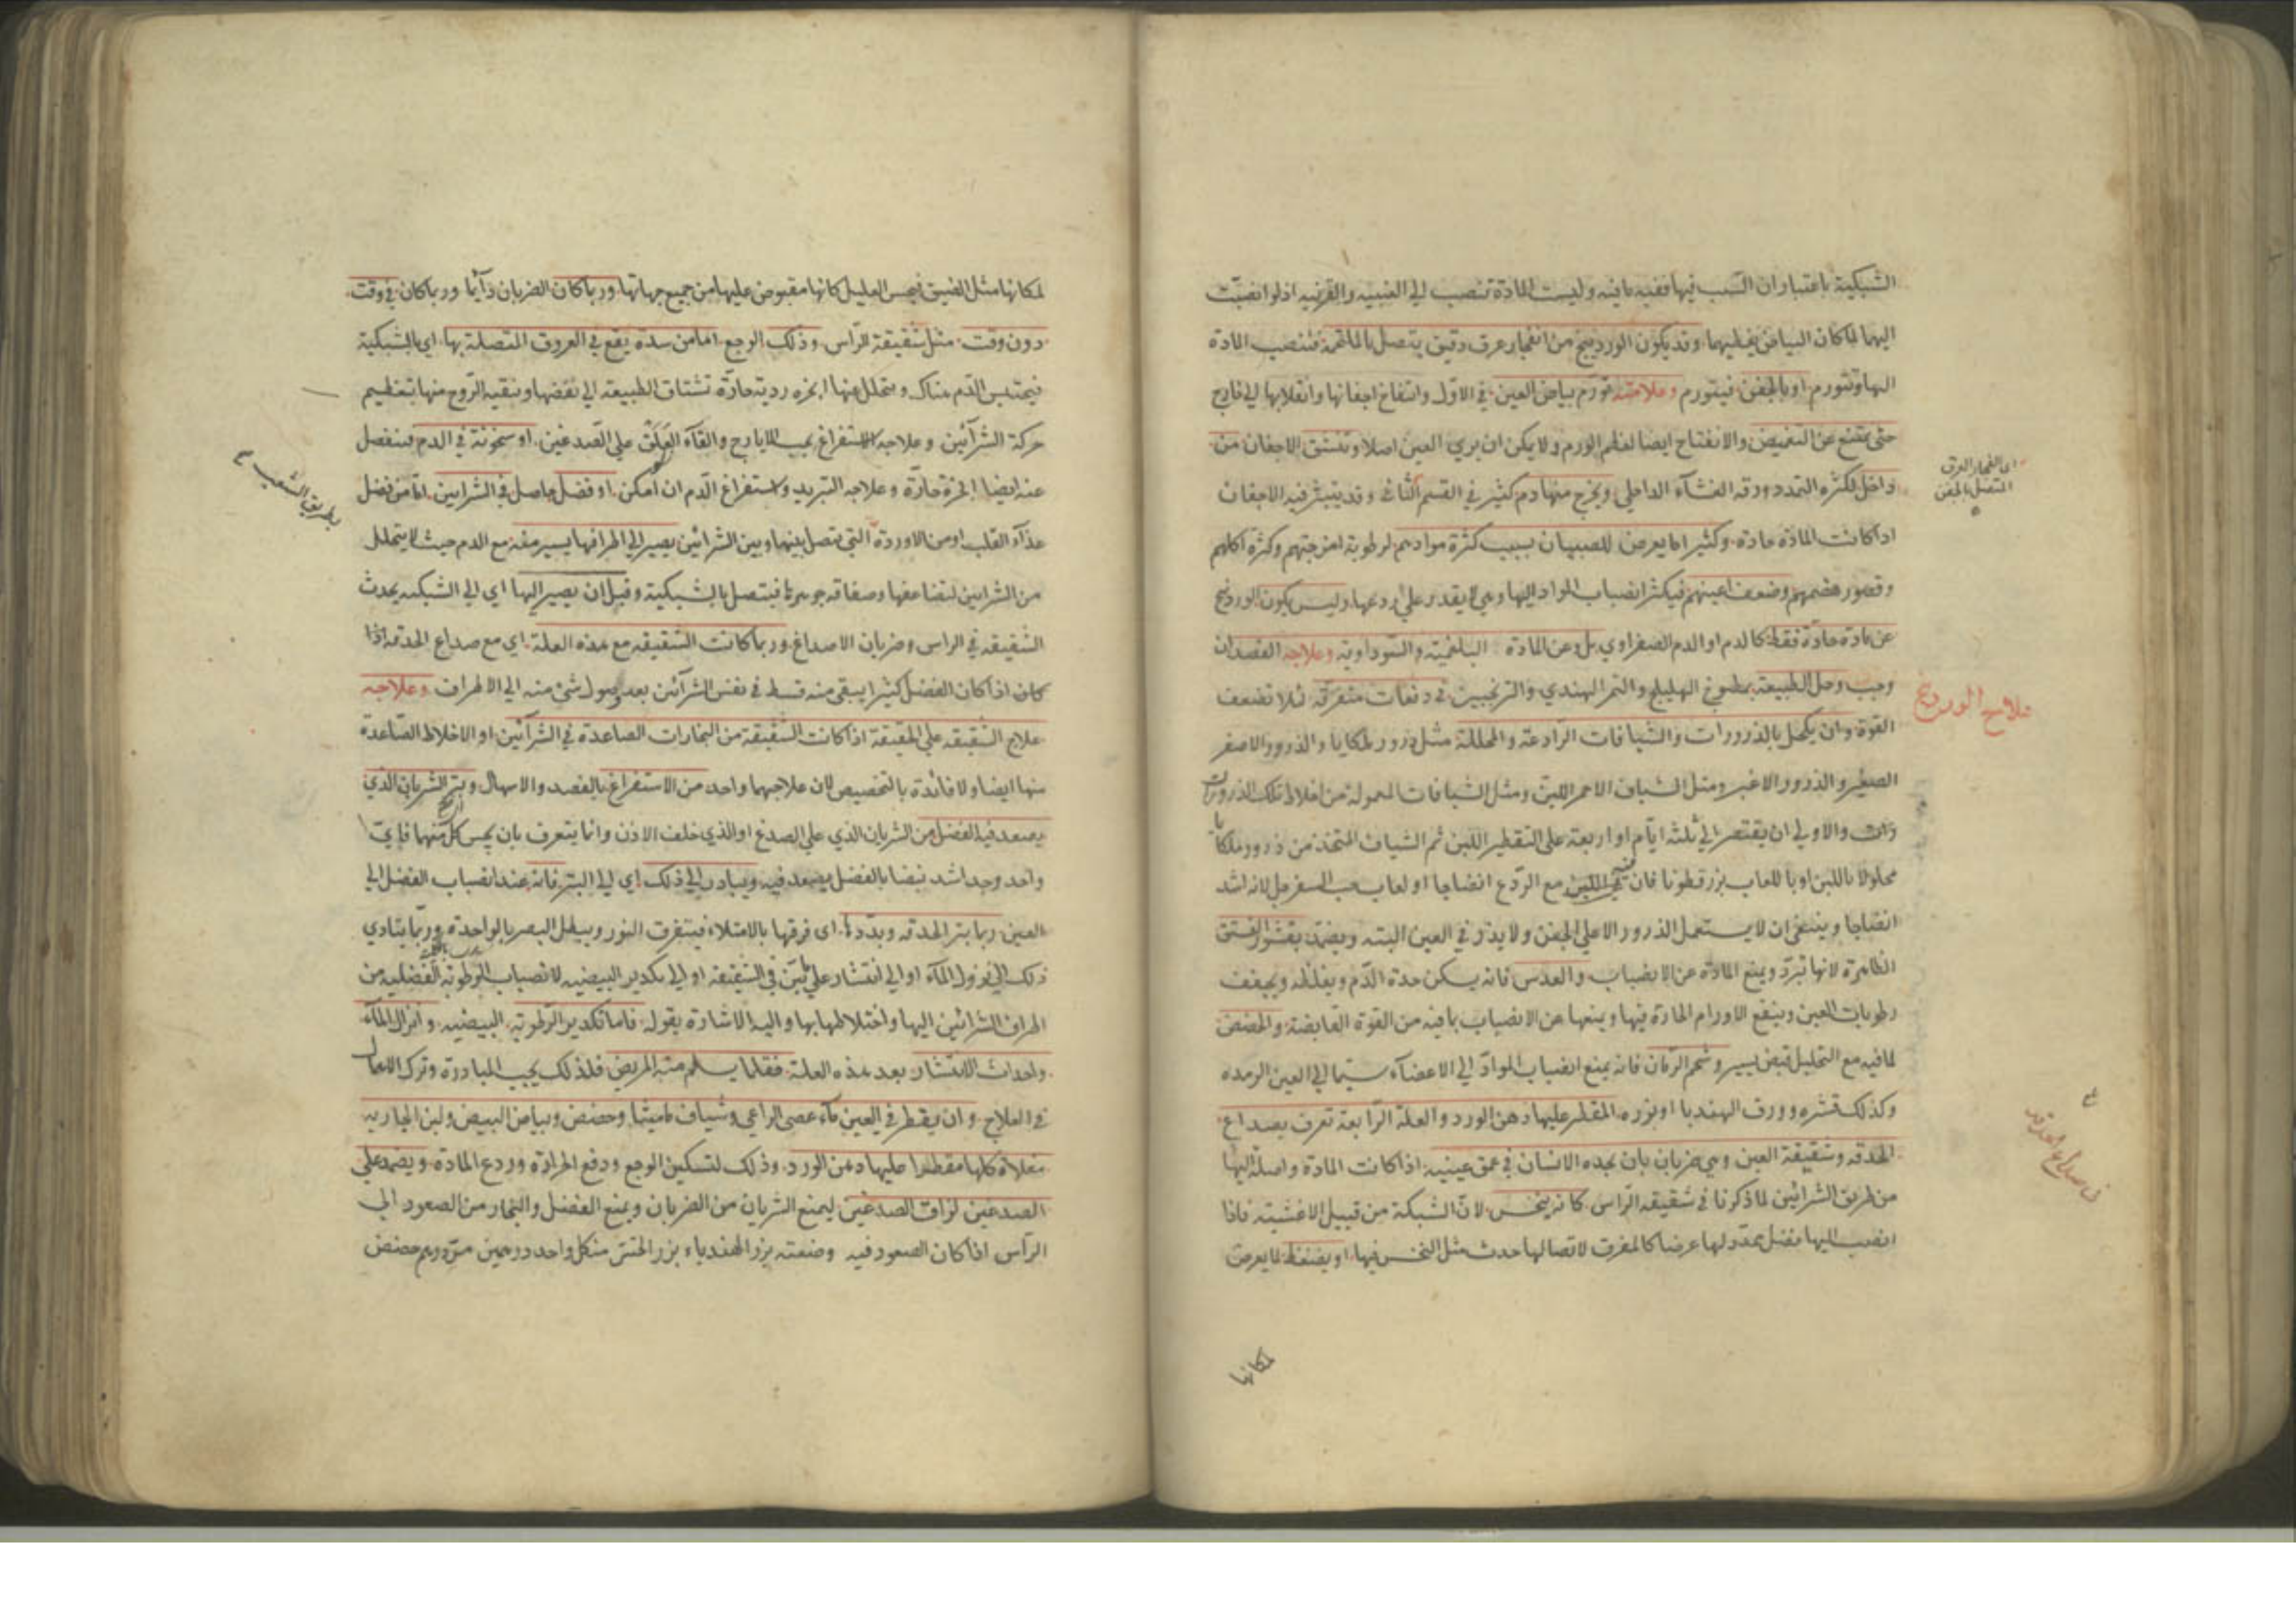 الشبكية باعتبار ان السبب فيها ففيه ما فيه وليست المادة تنصب الى العنبيه والقرنيه اذ لو انصبت
اليهما لما كان البياض يغطيهما وقد يكون الوردينج من انفجار عرق دقيق يتصل بالملتحمة فتنصب المادة
اليها وتتورم او بالجفن فيتورم وعلامته تورم بياض العين في الاول وانتفاخ اجفانها وانقلابها الى خارج
حتى يمتنع عن التغميض والانفتاح ايضا لعظم الورم ولا يمكن ان يرى العين اصلا وتنشق الاجفان من
داخل لكثرة التمدد ورقة الغشآء الداخلى ويخرج منها دم كثير في القسم الثانى وقد يتبثر فيه الاجفان
اذا كانت المادة حادة وكثيرا ما يعرض للصبيان بسبب كثرة موادهم لرطوبة امزجتهم وكثرة اكلهم
وقصور هضمهم وضعف اعينهم فيكثر انصباب المواد اليها وهي لا يقدر على ردعها وليس يكون الوردينج
عن مادة حادة فقط كالدم او الدم الصفراوي بل وعن المادة البلغمية والسوداوية وعلاجه الفصد ان
وجب وحل الطبيعة بمطبوخ الهليلج والتمر الهندي والترنجبين في دفعات متفرقة لئلا تضعف
القوة وان يكحل بالذرورات والشيافات الرادعة والمحللة مثل ذرور ملكايا والذرور الاصفر
الصغير والذرور الاغبر ومثل الشياف الاحمر اللين ومثل الشيافات المعمولة من اخلاط تلك الذرورات
والاولى ان يقتصر الى ثلثة ايام او اربعة على التقطير اللبن ثم الشياف المتخذ من ذرور ملكايا
محلولا باللبن او بالعاب بزر قطونا فان في اللبن مع الردع انضاجا او لعاب حب السفرجل لانه اشد
انضاجا وينبغى ان لا يستعمل الذرور الا على الجفن ولا يذر في العين البته ويضمد بقشور الفستق
الظاهرة لانها تبرد ويمنع المادة عن الانصباب والعدس فانه يسكن حدة الدم ويغلظه ويجفف
رطوبات العين وينفع الاورام الحارة فيها ويمنعها عن الانصباب بما فيه من القوة القابضة والحضض
لما فيه مع التحليل قبض يسير وشحم الرمان فانه يمنع انصباب المواد الى الاعضآء سيما الى العين الرمده
وكذلك قشره وورق الهندبا او بزره المقطر عليها دهن الورد والعلة الرابعة تعرف بصداع
الحدقه وشقيقة العين وهي ضربان بان يجده الانسان في عمق عينيه اذا كانت المادة واصلة اليها
من طريق الشرائين لما ذكرنا في شقيقه الراس كانه ينخس لان الشبكة من قبيل الاغشية فاذا
انصب اليها فضل يمدد لها عرضا كالمفرق لاتصالها حدث مثل النخس فيها او يضغط لما يعرض
لمكانها
اى انفجار العرق
المتصل بالجفن
علاج الوردينج
في صداع الحدقه
لمكانها مثل الضيق فيحس العليل كانها مقبوض عليها من جميع جهاتها وربما كان الضربان دآئما وربما كان في وقت
دون وقت مثل شقيقة الرأس وذلك الوجع اما من سدة يقع في العروق المتصلة بها اى بالشبكية
فيحتبس الدم هناك ويتحلل عنها ابخره ردية حادة تشتاق الطبيعة الى نفضها وتنقية الروح منها بتعظيم
حركة الشرآئين وعلاجه الاستفراغ بحب الايارج والقآء العلق على الصدغين او سخونة في الدم فينفصل
عنه ايضا ابخرة حارة وعلاجه التبريد واستفراغ الدم ان امكن او فضل حاصل في الشرايين اما من فضل
غذآء القلب او من الاوردة التي تتصل بينها وبين الشرائين يصير الى اطرافها يسير منه مع الدم حيث لا يتحلل
من الشرايين لتضاعفها وصفاقة جوهرها فيتصل بالشبكية وقبل ان يصير اليها اي الى الشبكيه يحدث
الشقيقه في الراس وضربان الاصداغ وربما كانت الشقيقه مع هذه العلة اى مع صداع الحدقه اذا
كان اذا كان الفضل كثيرا يبقى منه قسط في نفس الشرآئين بعد وصول شئ منه الى الاطراف وعلاجه
علاج الشقيقه على الحقيقة اذا كانت الشقيقة من البخارات الصاعدة في الشرآئين او الاخلاط الصاعدة
منها ايضا ولا فائدة بالتخصيص لان علاجهما واحد من الاستفراغ بالفصد والاسهال وبتر الشريان الذي
يصعد فيه الفضل من الشريان الذي على الصدغ او الذي خلف الاذن وانما يتعرف بان يحس كل منهما فاى
واحد وجد اشد نبضا بالفضل يصعد فيه ويبادر الى ذلك اي الى البتر فانه عند انصباب الفضل الى
العين ربما بتر الحدقه وبددها اى فرقها بالامتلاء فيتفرق النور ويبطل البصر بالواحدة وربما يتادي
ذلك الى نزول المآء او الى انتشار على ما بين في الشقيقه او الى تكدير البيضيه لانصباب الرطوبة الفضليه من
اطراف الشرائين اليها واختلاطها بها واليه الاشارة بقوله فاما تكدير الرطوبة البيضيه وانزال المآء
واحداث الانتشار بعد هذه العلة فقلما يسلم منه المريض فلذلك يجب المبادرة وترك الاهمال
في العلاج وان يقطر في العين مآء عصى الراعي وشياف ماميثا وحضض وبياض البيض ولبن الجاريه
مغلاة كلها مقطرا عليها دهن الورد وذلك لتسكين الوجع ودفع الحرارة وردع المادة ويضمد على
الصدغين لزاق الصدغين ليمنع الشريان من الضربان ويمنع الفضل والبخار من الصعود الى
الرأس اذا كان الصعود فيه وصنعته بزر الهندباء بزر الخس من كل واحد درهمين مر درهم حضض
بطريق الشعب